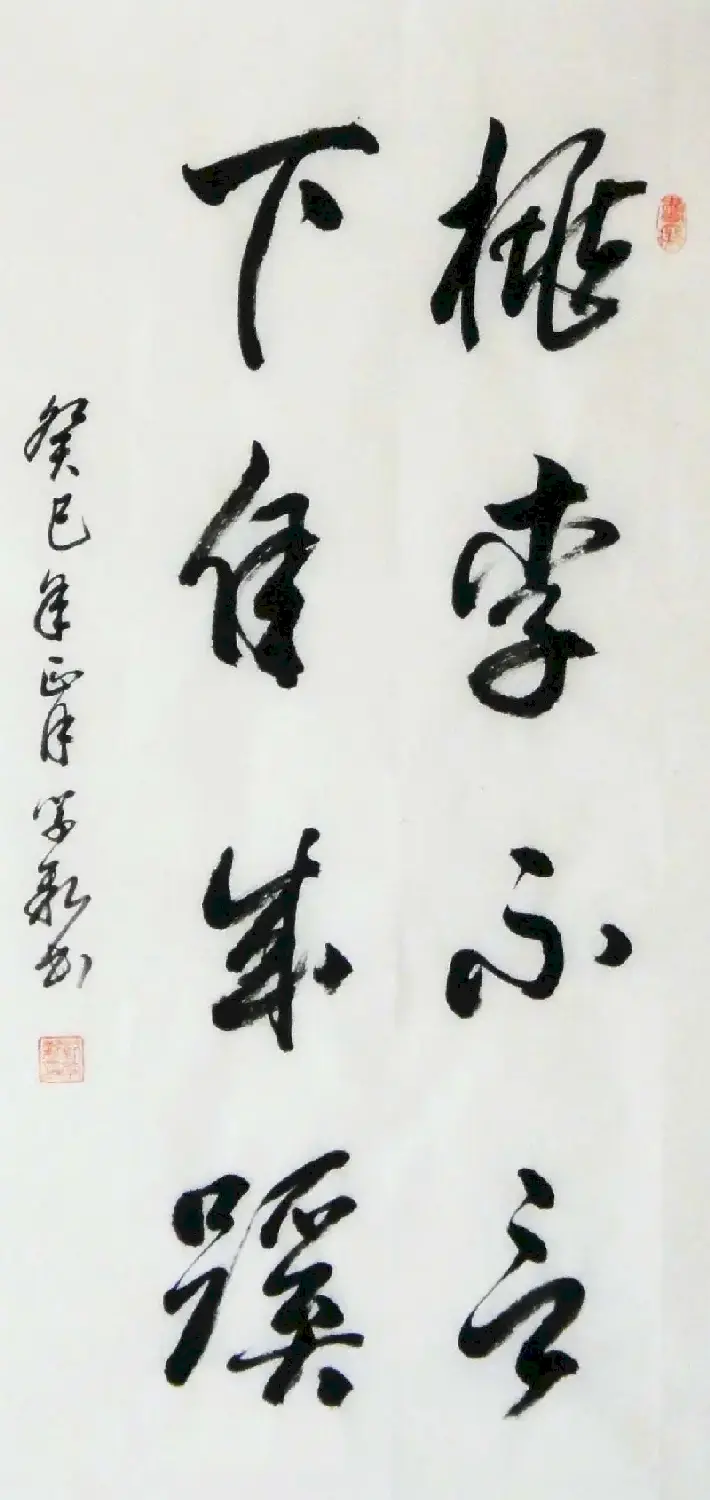 桃李不言
下自成蹊
癸巳年正月学书